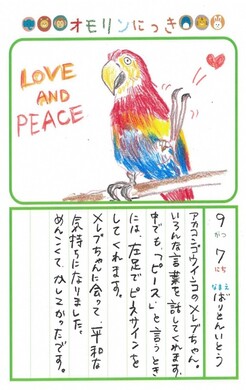 オモリンにっき
LOVE
AND
PEACE
9がつ7にち なまえ ばりとんいとう
アカコンゴウインコのメレブちゃん。
いろんな言葉を話してくれます。
中でも、「ピース。」と言うとき
には、左足でピースサインを
してくれます。
メレブちゃんに会って平和な
気持ちになりました。
めんこくてかしこかったです。